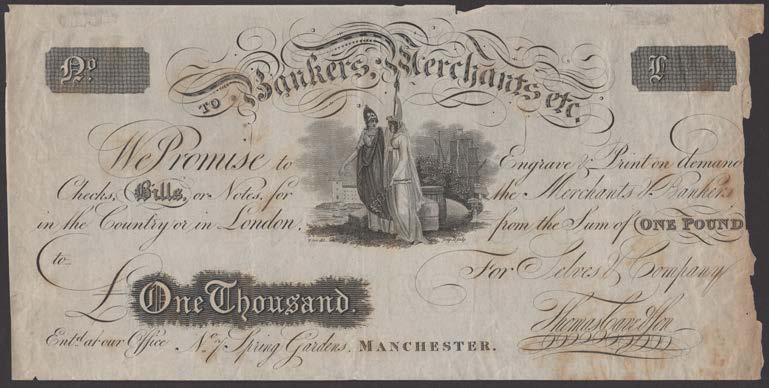 No. £
TO Bankers, Merchants etc.
We Promise to Engrave & Print on demand
Checks, Bills, or Notes, for the Merchants & Bankers
in the Country or in London, from the Sum of ONE POUND
to For Selves & Company
£ One Thousand.
Thomas & Son
Entd. at our Office No. 7 Spring Gardens, MANCHESTER.